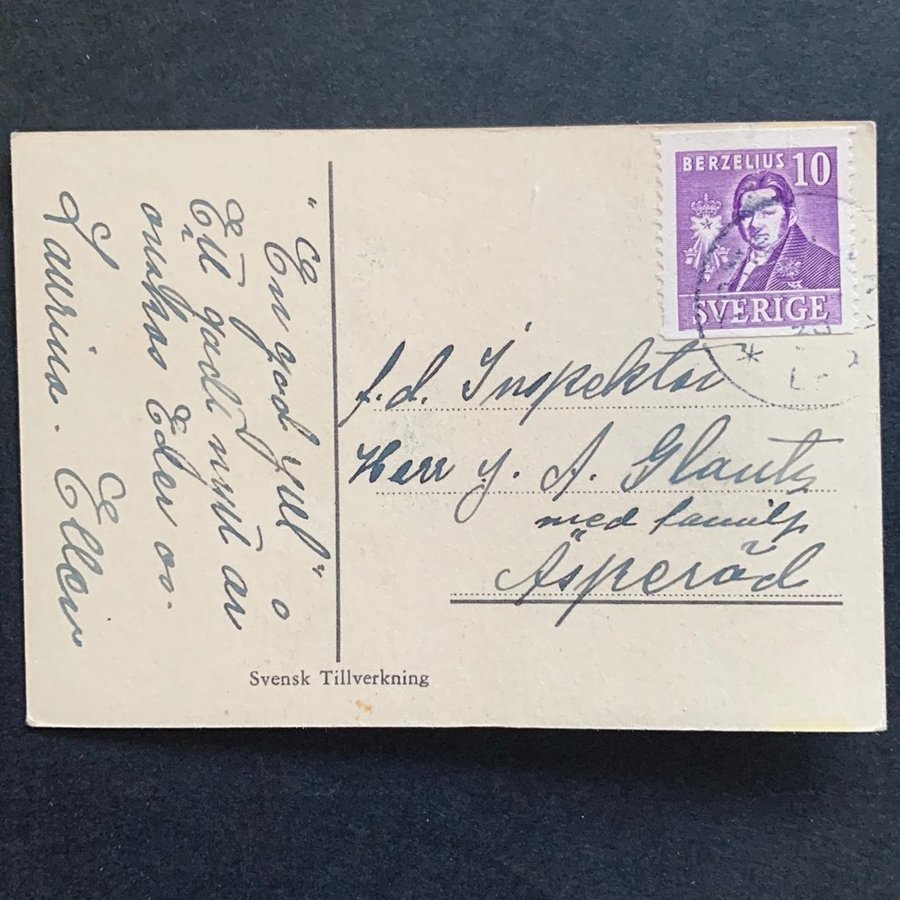 BERZELIUS 10
SVERIGE
"En god Jul" o
Ett godt nytt år
önskas Eder av.
Laurina. Ellen
f.d. Inspektor
Herr J. A. Glantz
med familj
Äsperöd
Svensk Tillverkning